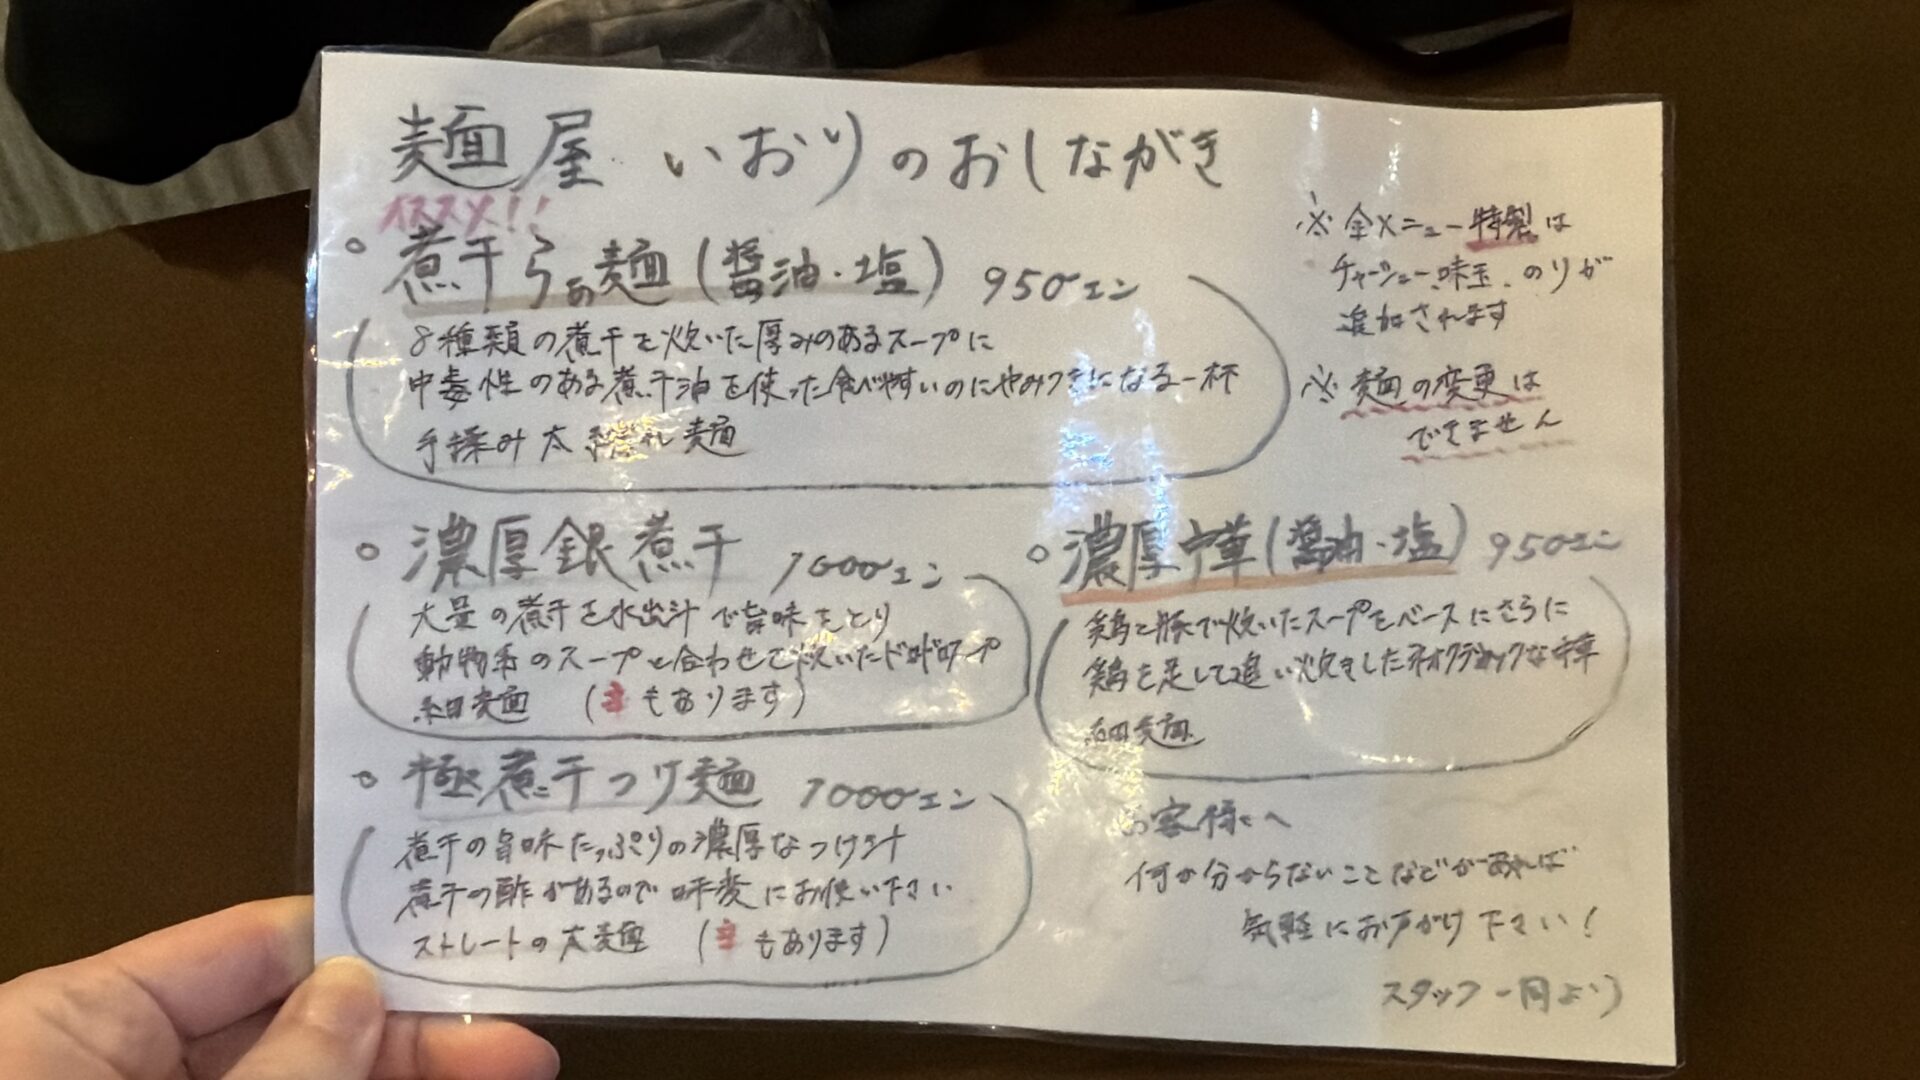 麺屋 いおりのおしながき
オススメ!!
。煮干らぁ麺(醤油・塩) 950エン
8種類の煮干を炊いた厚みのあるスープに
中毒性のある煮干油を使った食べやすいのにやみつきになる一杯
手揉み太縮れ麺
※全メニュー特製は
チャーシュー、味玉、のりが
追加されます
※麺の変更は
できません
。濃厚銀煮干 1000エン
大量の煮干を水出汁で旨味をとり
動物系のスープと合わせて炊いたドロドロスープ
細麺 (辛もあります)
。濃厚中華(醤油・塩) 950エン
鶏と豚で炊いたスープをベースにさらに
鶏を足して追い炊きしたネオクラシックな中華
細麺
。極煮干つけ麺 1000エン
煮干の旨味たっぷりの濃厚なつけ汁
煮干の酢があるので味変にお使い下さい
ストレートの太麺 (辛もあります)
お客様へ
何か分からないことなどがあれば
気軽にお声がけ下さい!
スタッフ一同より